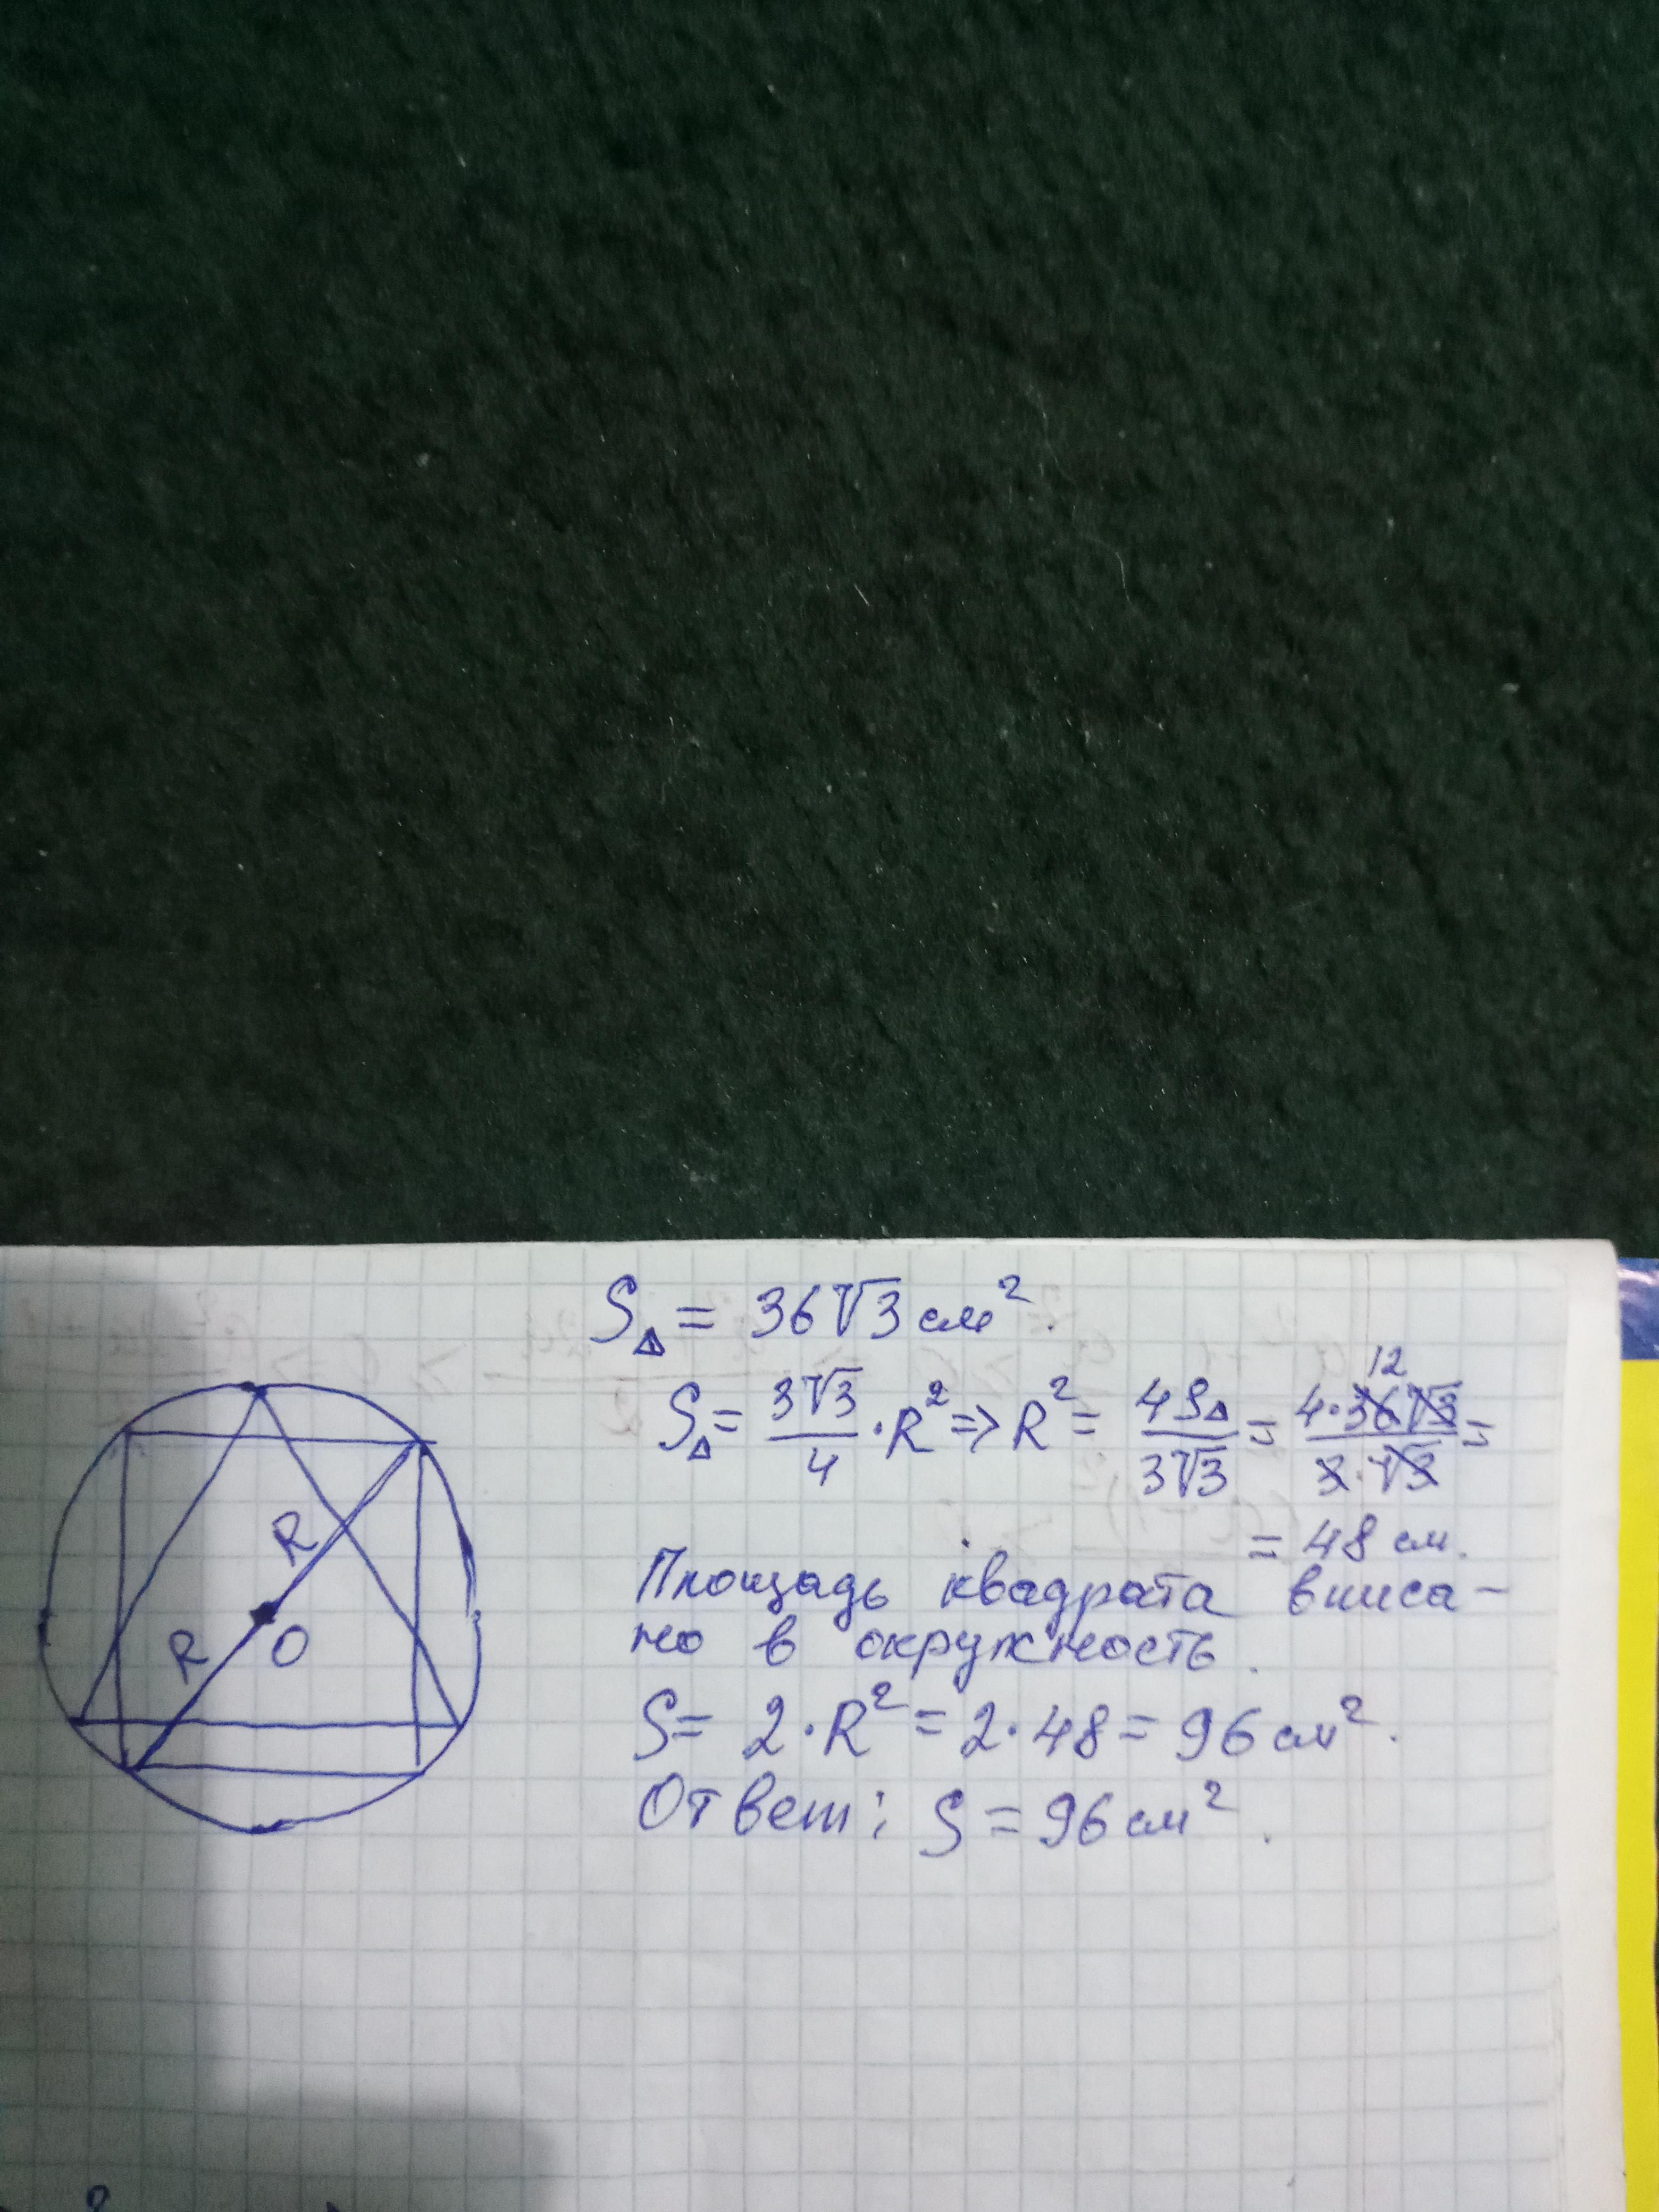 S△ = 36√3 см².
S△ = 3√3/4 · R² => R² = 4S△/3√3 = 4·36√3/3·√3 =
12
= 48 см.
Площадь квадрата вписа-
но в окружность.
S = 2·R² = 2·48 = 96 см².
Ответ: S = 96 см².
R
R O